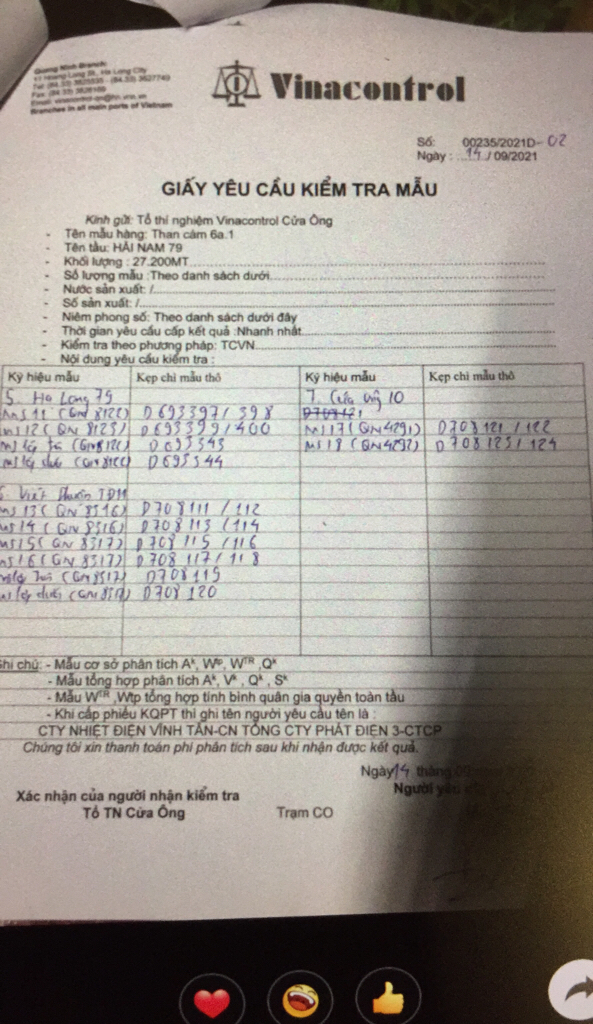 Quảng Ninh Branch:
11 Hoang Long St., Ha Long City
Branches in all main ports of Vietnam
Vinacontrol
Số: 00235/2021D-02
Ngày : 14 / 09/2021
GIẤY YÊU CẦU KIỂM TRA MẪU
Kính gửi: Tổ thí nghiệm Vinacontrol Cửa Ông
- Tên mẫu hàng: Than cám 6a.1
- Tên tàu: HẢI NAM 79
- Khối lượng : 27.200MT
- Số lượng mẫu :Theo danh sách dưới
- Nước sản xuất: /
- Số sản xuất: /
- Niêm phong số: Theo danh sách dưới đây
- Thời gian yêu cầu cấp kết quả :Nhanh nhất
- Kiểm tra theo phương pháp: TCVN
- Nội dung yêu cầu kiểm tra :
Ký hiệu mẫu Kẹp chì mẫu thô Ký hiệu mẫu Kẹp chì mẫu thô
5. Hạ Long 79 7. Cửa Ông 10
MS 11 (QN 8122) D693397/398
MS 12 (QN 8123) D693399/400 MS 17 (QN4291) D708121/122
D693343 MS 18 (QN4292) D708123/124
D693344
Việt Thuận TĐM
MS 13 (QN 8316) D708111/112
MS 14 (QN 8316) D708113/114
MS 15 (QN 8317) D708115/116
MS 16 (QN 8317) D708117/118
(QN8317) D708119
D708120
Ghi chú: - Mẫu cơ sở phân tích Aᵏ, Wᵖ, Wᵀᴿ ,Qᵏ
- Mẫu tổng hợp phân tích Aᵏ, Vᵏ , Qᵏ , Sᵏ
- Mẫu Wᵀᴿ ,Wtp tổng hợp tính bình quân gia quyền toàn tàu
- Khi cấp phiếu KQPT thì ghi tên người yêu cầu tên là :
CTY NHIỆT ĐIỆN VĨNH TÂN-CN TỔNG CTY PHÁT ĐIỆN 3-CTCP
Chúng tôi xin thanh toán phí phân tích sau khi nhận được kết quả.
Ngày 14 tháng
Xác nhận của người nhận kiểm tra Người yêu
Tổ TN Cửa Ông Trạm CO